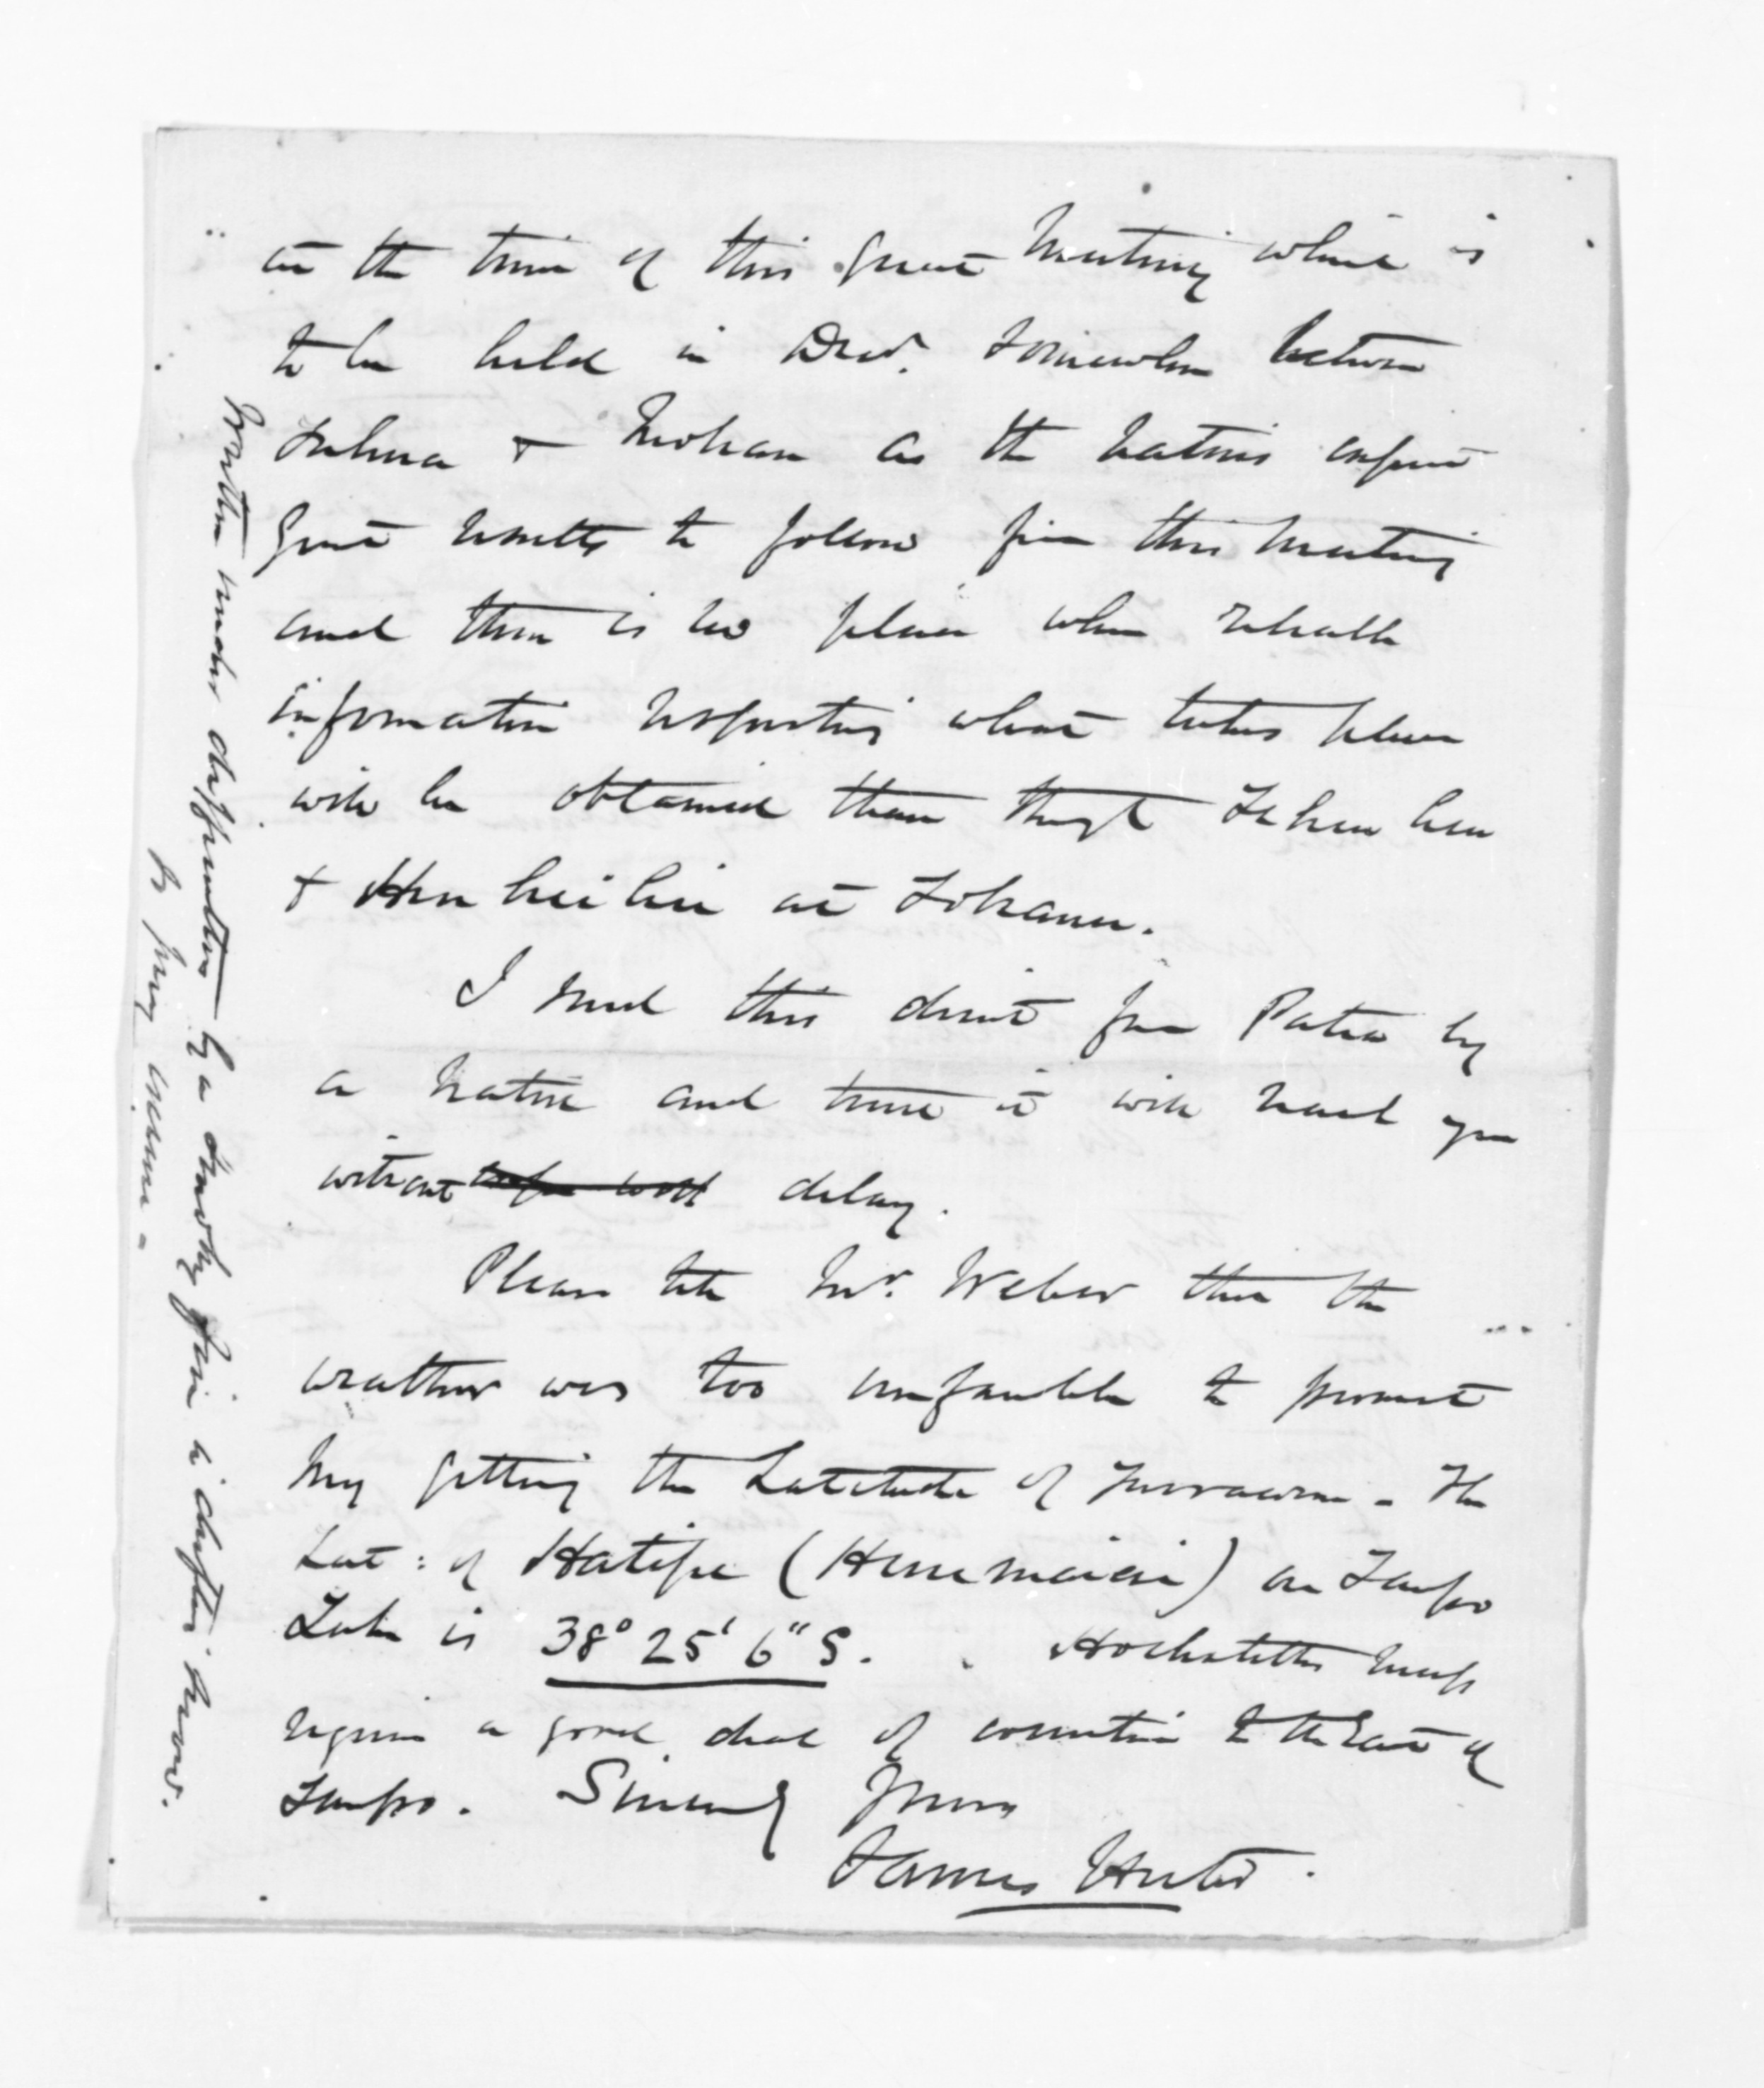 at the time of this great Meeting which is
to be held in Decr. somewhere between
Tuhua & Mokau as the Natives expect
great results to follow from this Meeting
and there is no place where reliable
information respecting what takes place
will be obtained than through
& at Tokanu.
I send this direct from Patea by
a Native and trust it will reach you
without delay.
Please tell Mr. Weber that the
weather was too unfavorable to permit
my getting the Latitude of - The
Lat: of Hatepe (Hinemaiai) on Taupo
Lake is 38° 25' 6" S. Hochstetters map
requires a good deal of correction to the East of
Taupo. Sincerely Yours
James Hector.
Written under difficulties by a smoky fire in